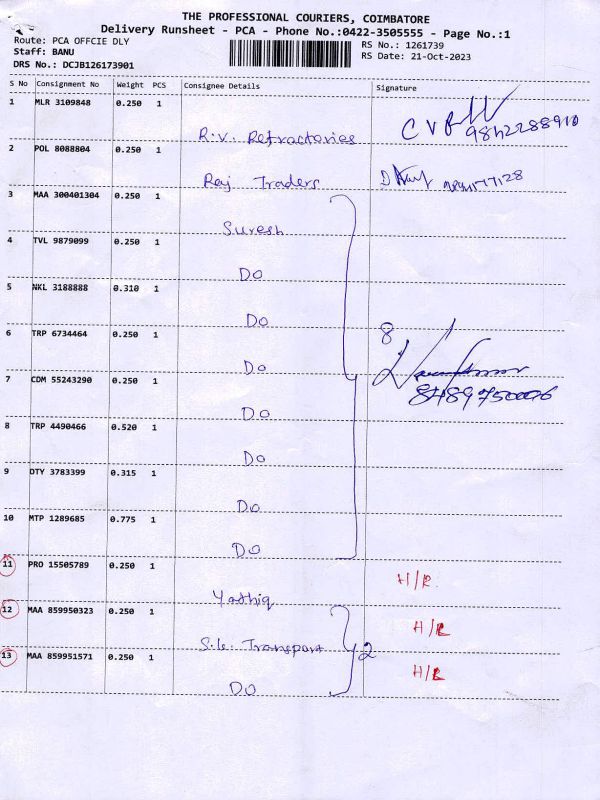 THE PROFESSIONAL COURIERS, COIMBATORE
Delivery Runsheet - PCA - Phone No.:0422-3505555 - Page No.:1
Route: PCA OFFCIE DLY
RS No.: 1261739
Staff: BANU
RS Date: 21-Oct-2023
DRS No.: DCJB126173901
S No Consignment No Weight PCS Consignee Details Signature
1 MLR 3109848 0.250 1
R.V. Refractories 9842288910
2 POL 8088804 0.250 1
Raj Traders
3 MAA 300401304 0.250 1
Suresh
4 TVL 9879099 0.250 1
DO
5 NKL 3188888 0.310 1
DO
6 TRP 6734464 0.250 1 8
DO
7 CDM 55243290 0.250 1
8489750006
DO
8 TRP 4490466 0.520 1
DO
9 OTY 3783399 0.315 1
DO
10 MTP 1289685 0.775 1
DO
11 PRO 15505789 0.250 1 H/R
Yathiq
12 MAA 859950323 0.250 1 H/R
S.K. Transport 2
13 MAA 859951571 0.250 1 H/R
DO